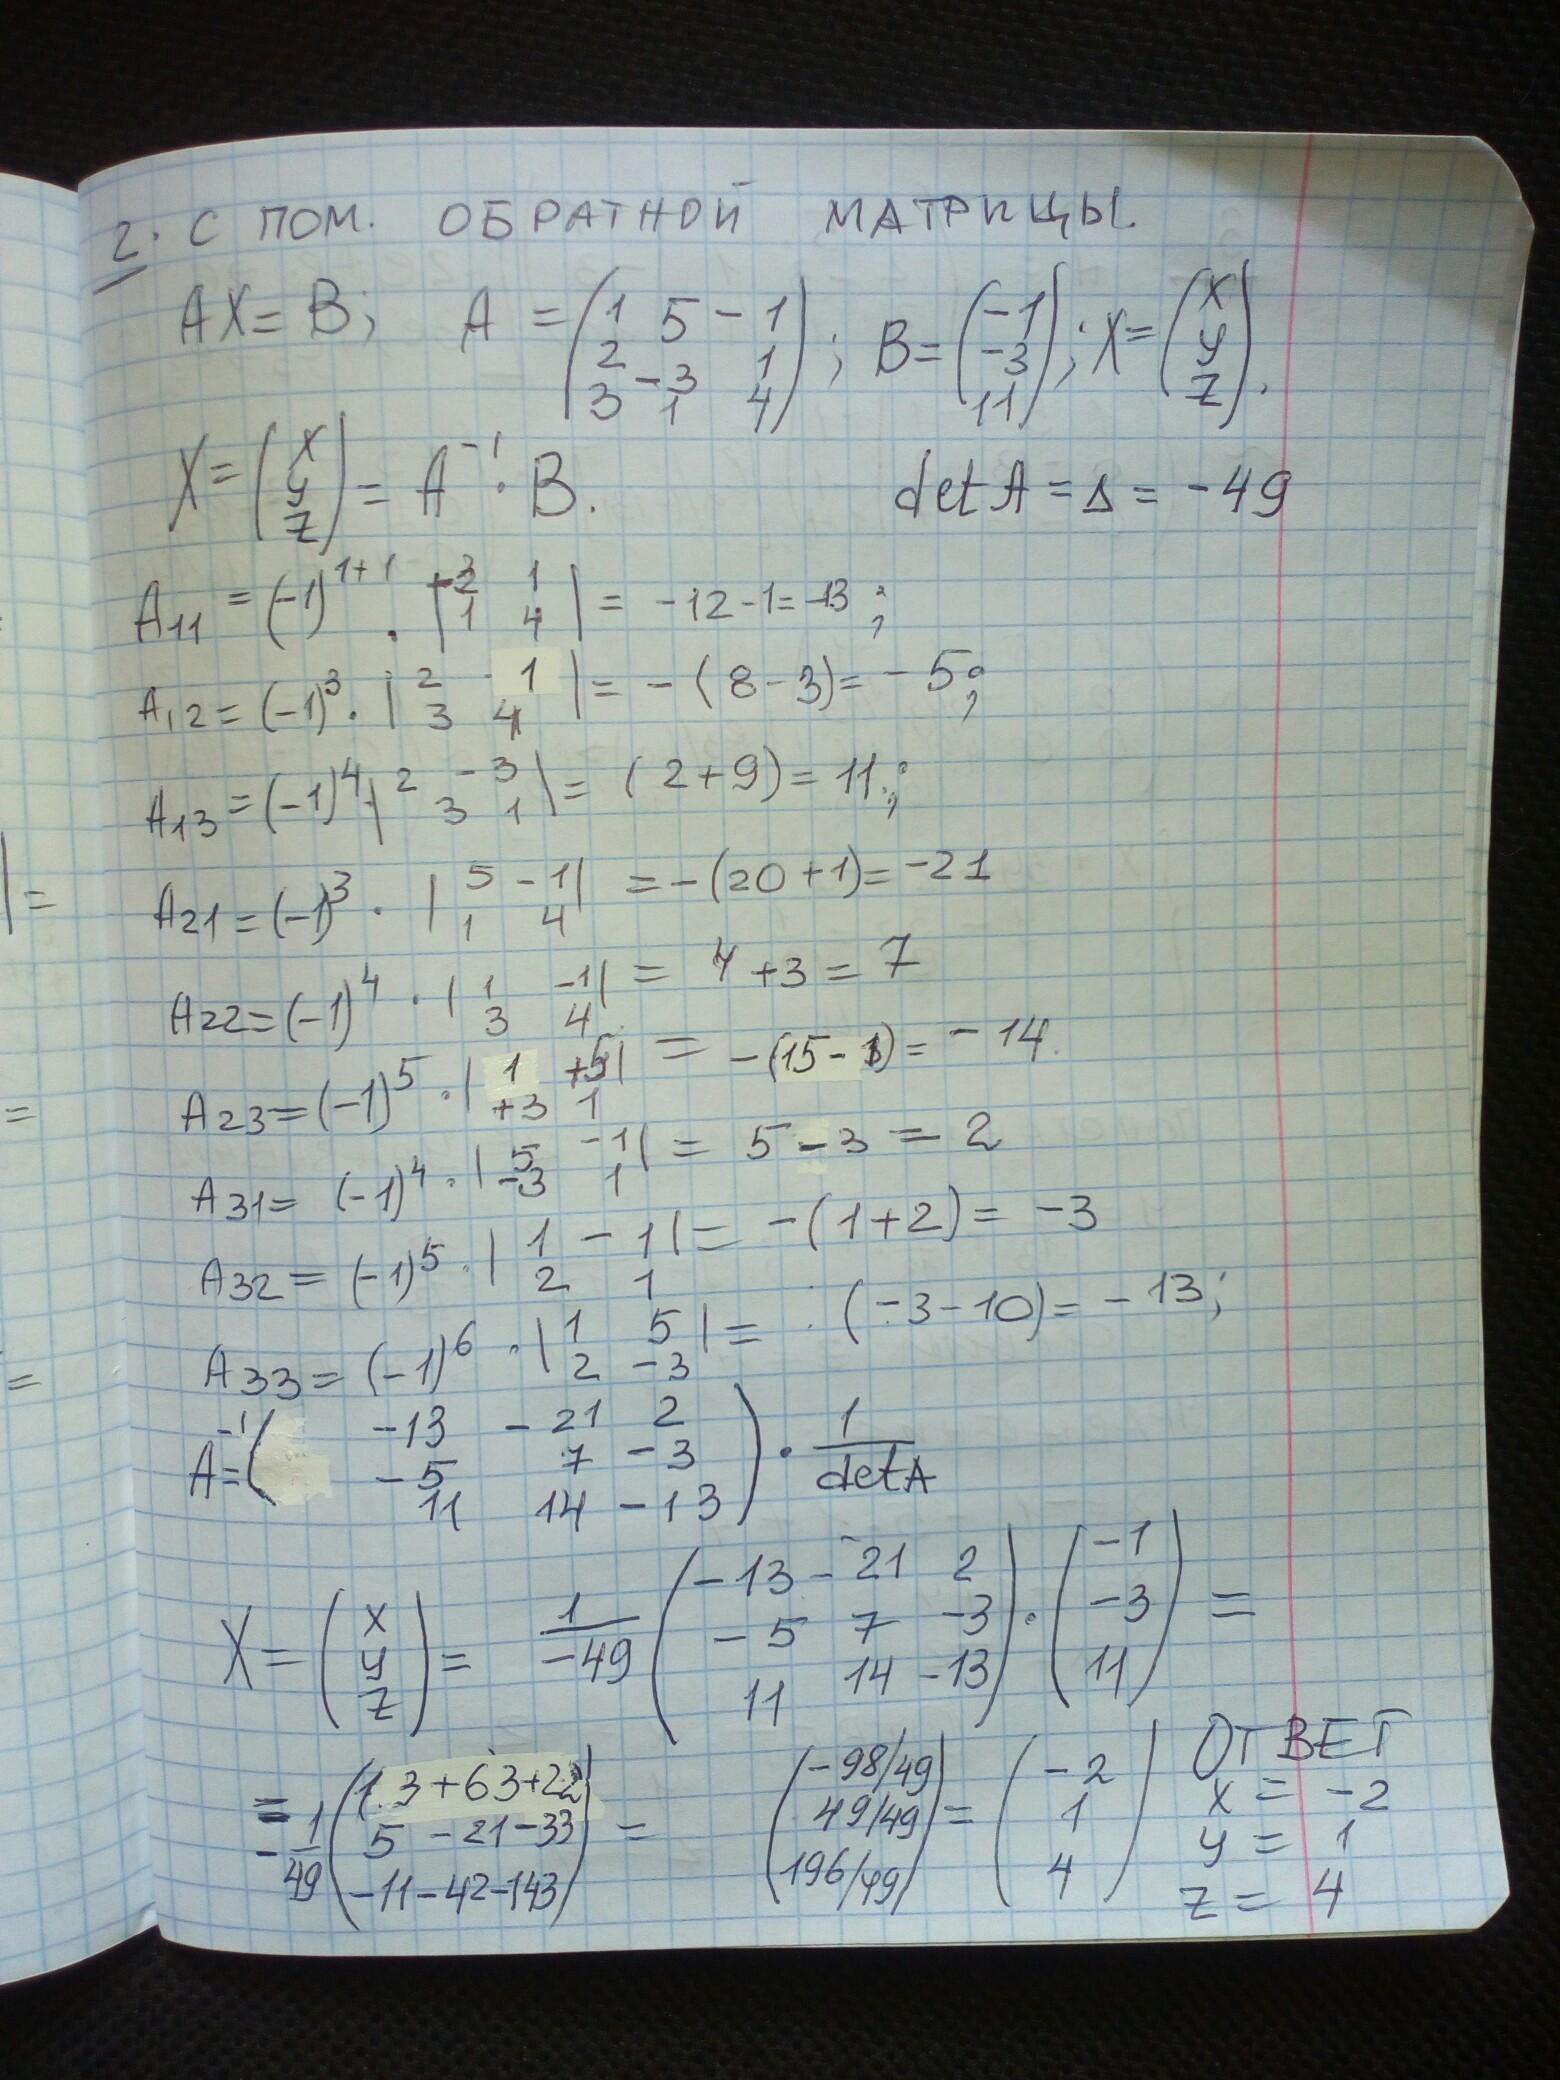 2. С ПОМ. ОБРАТНОЙ МАТРИЦЫ.
AX = B; A = (1 5 -1; 2 -3 1; 3 1 4); B = (-1; -3; 11); X = (x; y; z).
X = (x; y; z) = A^-1 · B. det A = Δ = -49
A11 = (-1)^1+1 · |-3 1; 1 4| = -12-1 = -13;
A12 = (-1)^3 · |2 1; 3 4| = -(8-3) = -5;
A13 = (-1)^4 · |2 -3; 3 1| = (2+9) = 11;
A21 = (-1)^3 · |5 -1; 1 4| = -(20+1) = -21
A22 = (-1)^4 · |1 -1; 3 4| = 4+3 = 7
A23 = (-1)^5 · |1 +5; +3 1| = -(15-1) = -14.
A31 = (-1)^4 · |5 -1; -3 1| = 5-3 = 2
A32 = (-1)^5 · |1 -1; 2 1| = -(1+2) = -3
A33 = (-1)^6 · |1 5; 2 -3| = (-3-10) = -13;
A^-1 = (-13 -21 2; -5 7 -3; 11 14 -13) · 1/det A
X = (x; y; z) = 1/-49 (-13 -21 2; -5 7 -3; 11 14 -13) · (-1; -3; 11) =
= -1/49 (13+63+22; 5-21-33; -11-42-143) = (-98/49; 49/49; 196/49) = (-2; 1; 4)
ОТВЕТ
x = -2
y = 1
z = 4